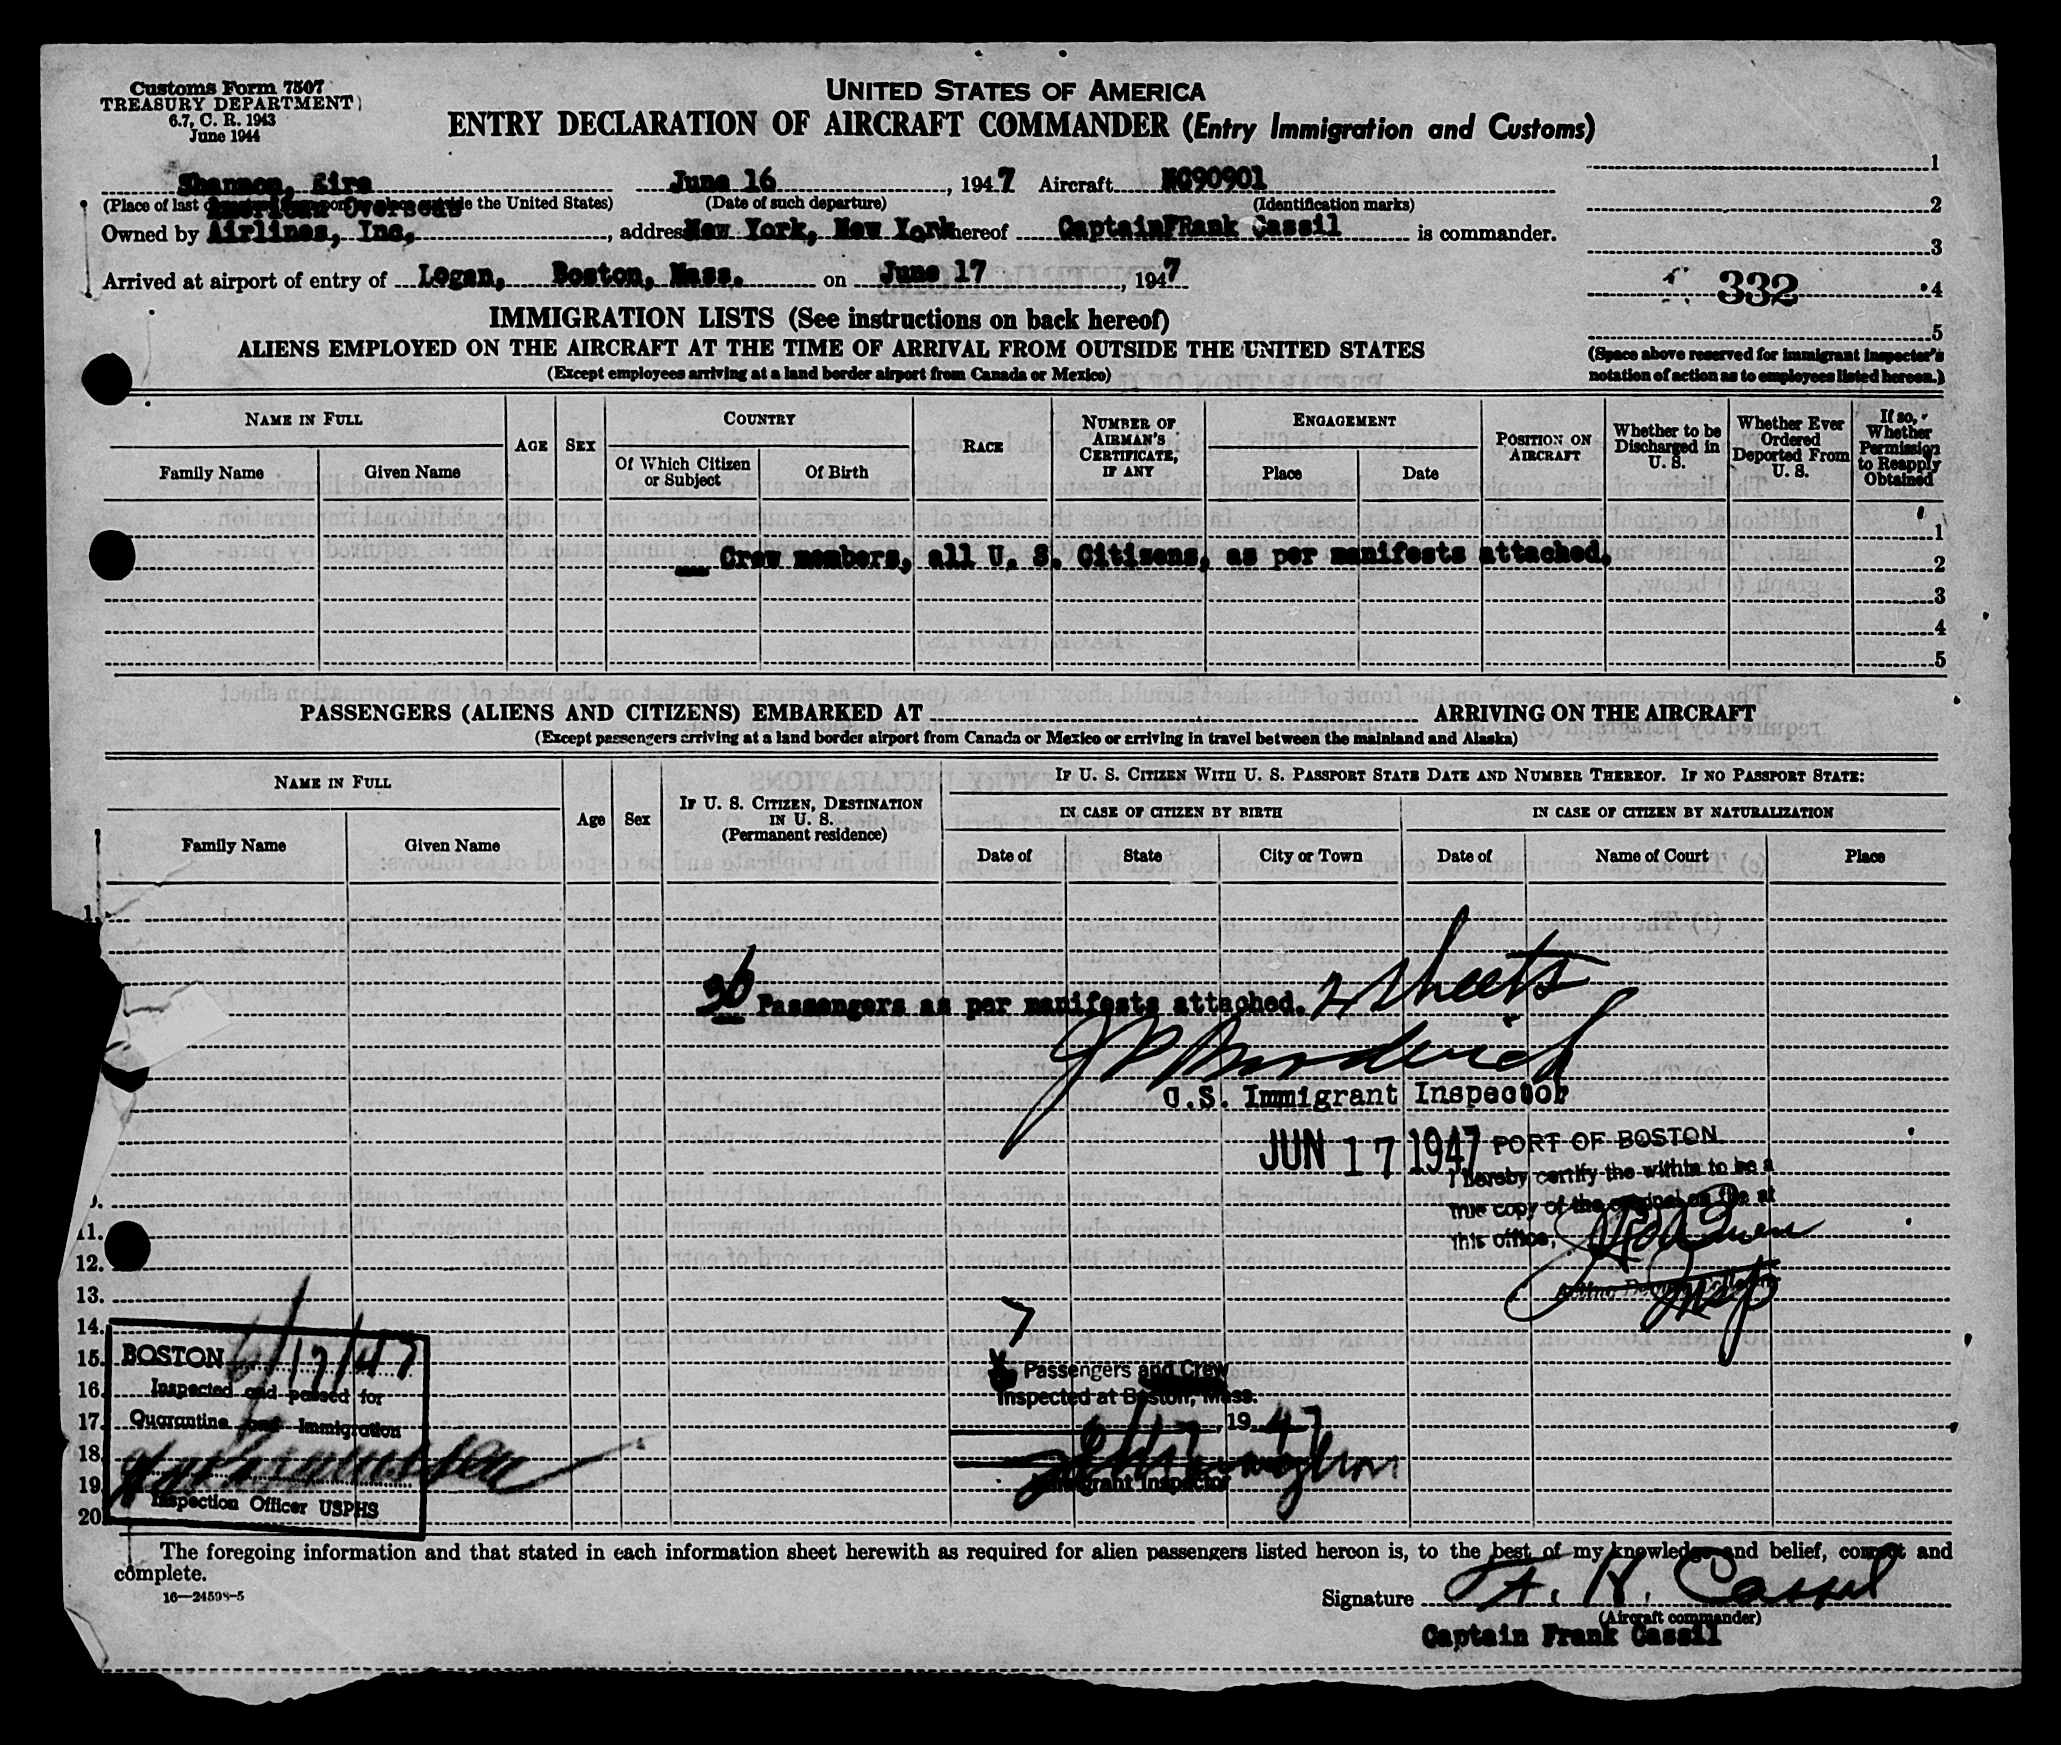 Customs Form 7507
TREASURY DEPARTMENT
6.7, C. R. 1943
June 1944
UNITED STATES OF AMERICA
ENTRY DECLARATION OF AIRCRAFT COMMANDER (Entry Immigration and Customs)
Shannon, Eire June 16, 1947 Aircraft NC90901
(Place of last the United States) (Date of such departure) (Identification marks)
American Overseas
Owned by Airlines, Inc., address New York, New York hereof Captain FRank Cassil is commander.
Arrived at airport of entry of Logan, Boston, Mass. on June 17, 1947
1
2
3
332 4
5
(Space above reserved for immigrant inspector's
notation of action as to employees listed hereon.)
IMMIGRATION LISTS (See instructions on back hereof)
ALIENS EMPLOYED ON THE AIRCRAFT AT THE TIME OF ARRIVAL FROM OUTSIDE THE UNITED STATES
(Except employees arriving at a land border airport from Canada or Mexico)
NAME IN FULL
Family Name Given Name
AGE SEX
COUNTRY
Of Which Citizen or Subject Of Birth
RACE
NUMBER OF AIRMAN'S CERTIFICATE, IF ANY
ENGAGEMENT
Place Date
POSITION ON AIRCRAFT
Whether to be Discharged in U. S.
Whether Ever Ordered Deported From U. S.
If so, Whether Permission to Reapply Obtained
1
Crew members, all U. S. Citizens, as per manifests attached. 2
3
4
5
PASSENGERS (ALIENS AND CITIZENS) EMBARKED AT ARRIVING ON THE AIRCRAFT
(Except passengers arriving at a land border airport from Canada or Mexico or arriving in travel between the mainland and Alaska)
NAME IN FULL
Family Name Given Name
Age Sex
IF U. S. CITIZEN, DESTINATION IN U. S.
(Permanent residence)
IF U. S. CITIZEN WITH U. S. PASSPORT STATE DATE AND NUMBER THEREOF. IF NO PASSPORT STATE:
IN CASE OF CITIZEN BY BIRTH IN CASE OF CITIZEN BY NATURALIZATION
Date of State City or Town Date of Name of Court Place
1.
36 Passengers as per manifests attached. 2 sheets
U.S. Immigrant Inspector
JUN 17 1947 PORT OF BOSTON
I hereby certify the within to be a
true copy of the original on file at
this office,
Insp
11.
12.
13.
14.
15.
16.
17.
18.
19.
20.
BOSTON 6/17/47
Inspected and passed for
Quarantine and Immigration
Inspection Officer USPHS
7
Passengers and Crew
Inspected at Boston, Mass.
6/17, 1947
Immigrant Inspector
The foregoing information and that stated in each information sheet herewith as required for alien passengers listed hereon is, to the best of my knowledge and belief, correct and
complete.
16—24598-5
Signature F. H. Cassil
(Aircraft commander)
Captain Frank Cassil